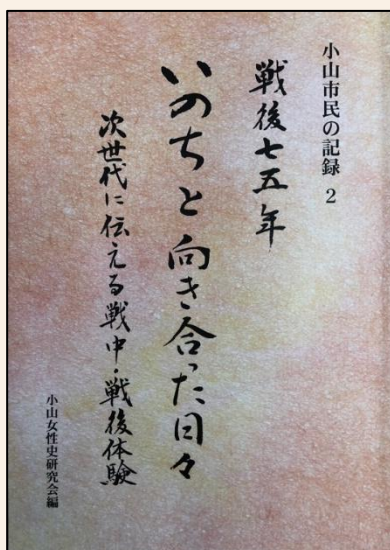 小山市民の記録 2
戦後七五年
いのちと向き合った日々
次世代に伝える戦中・戦後体験
小山女性史研究会編